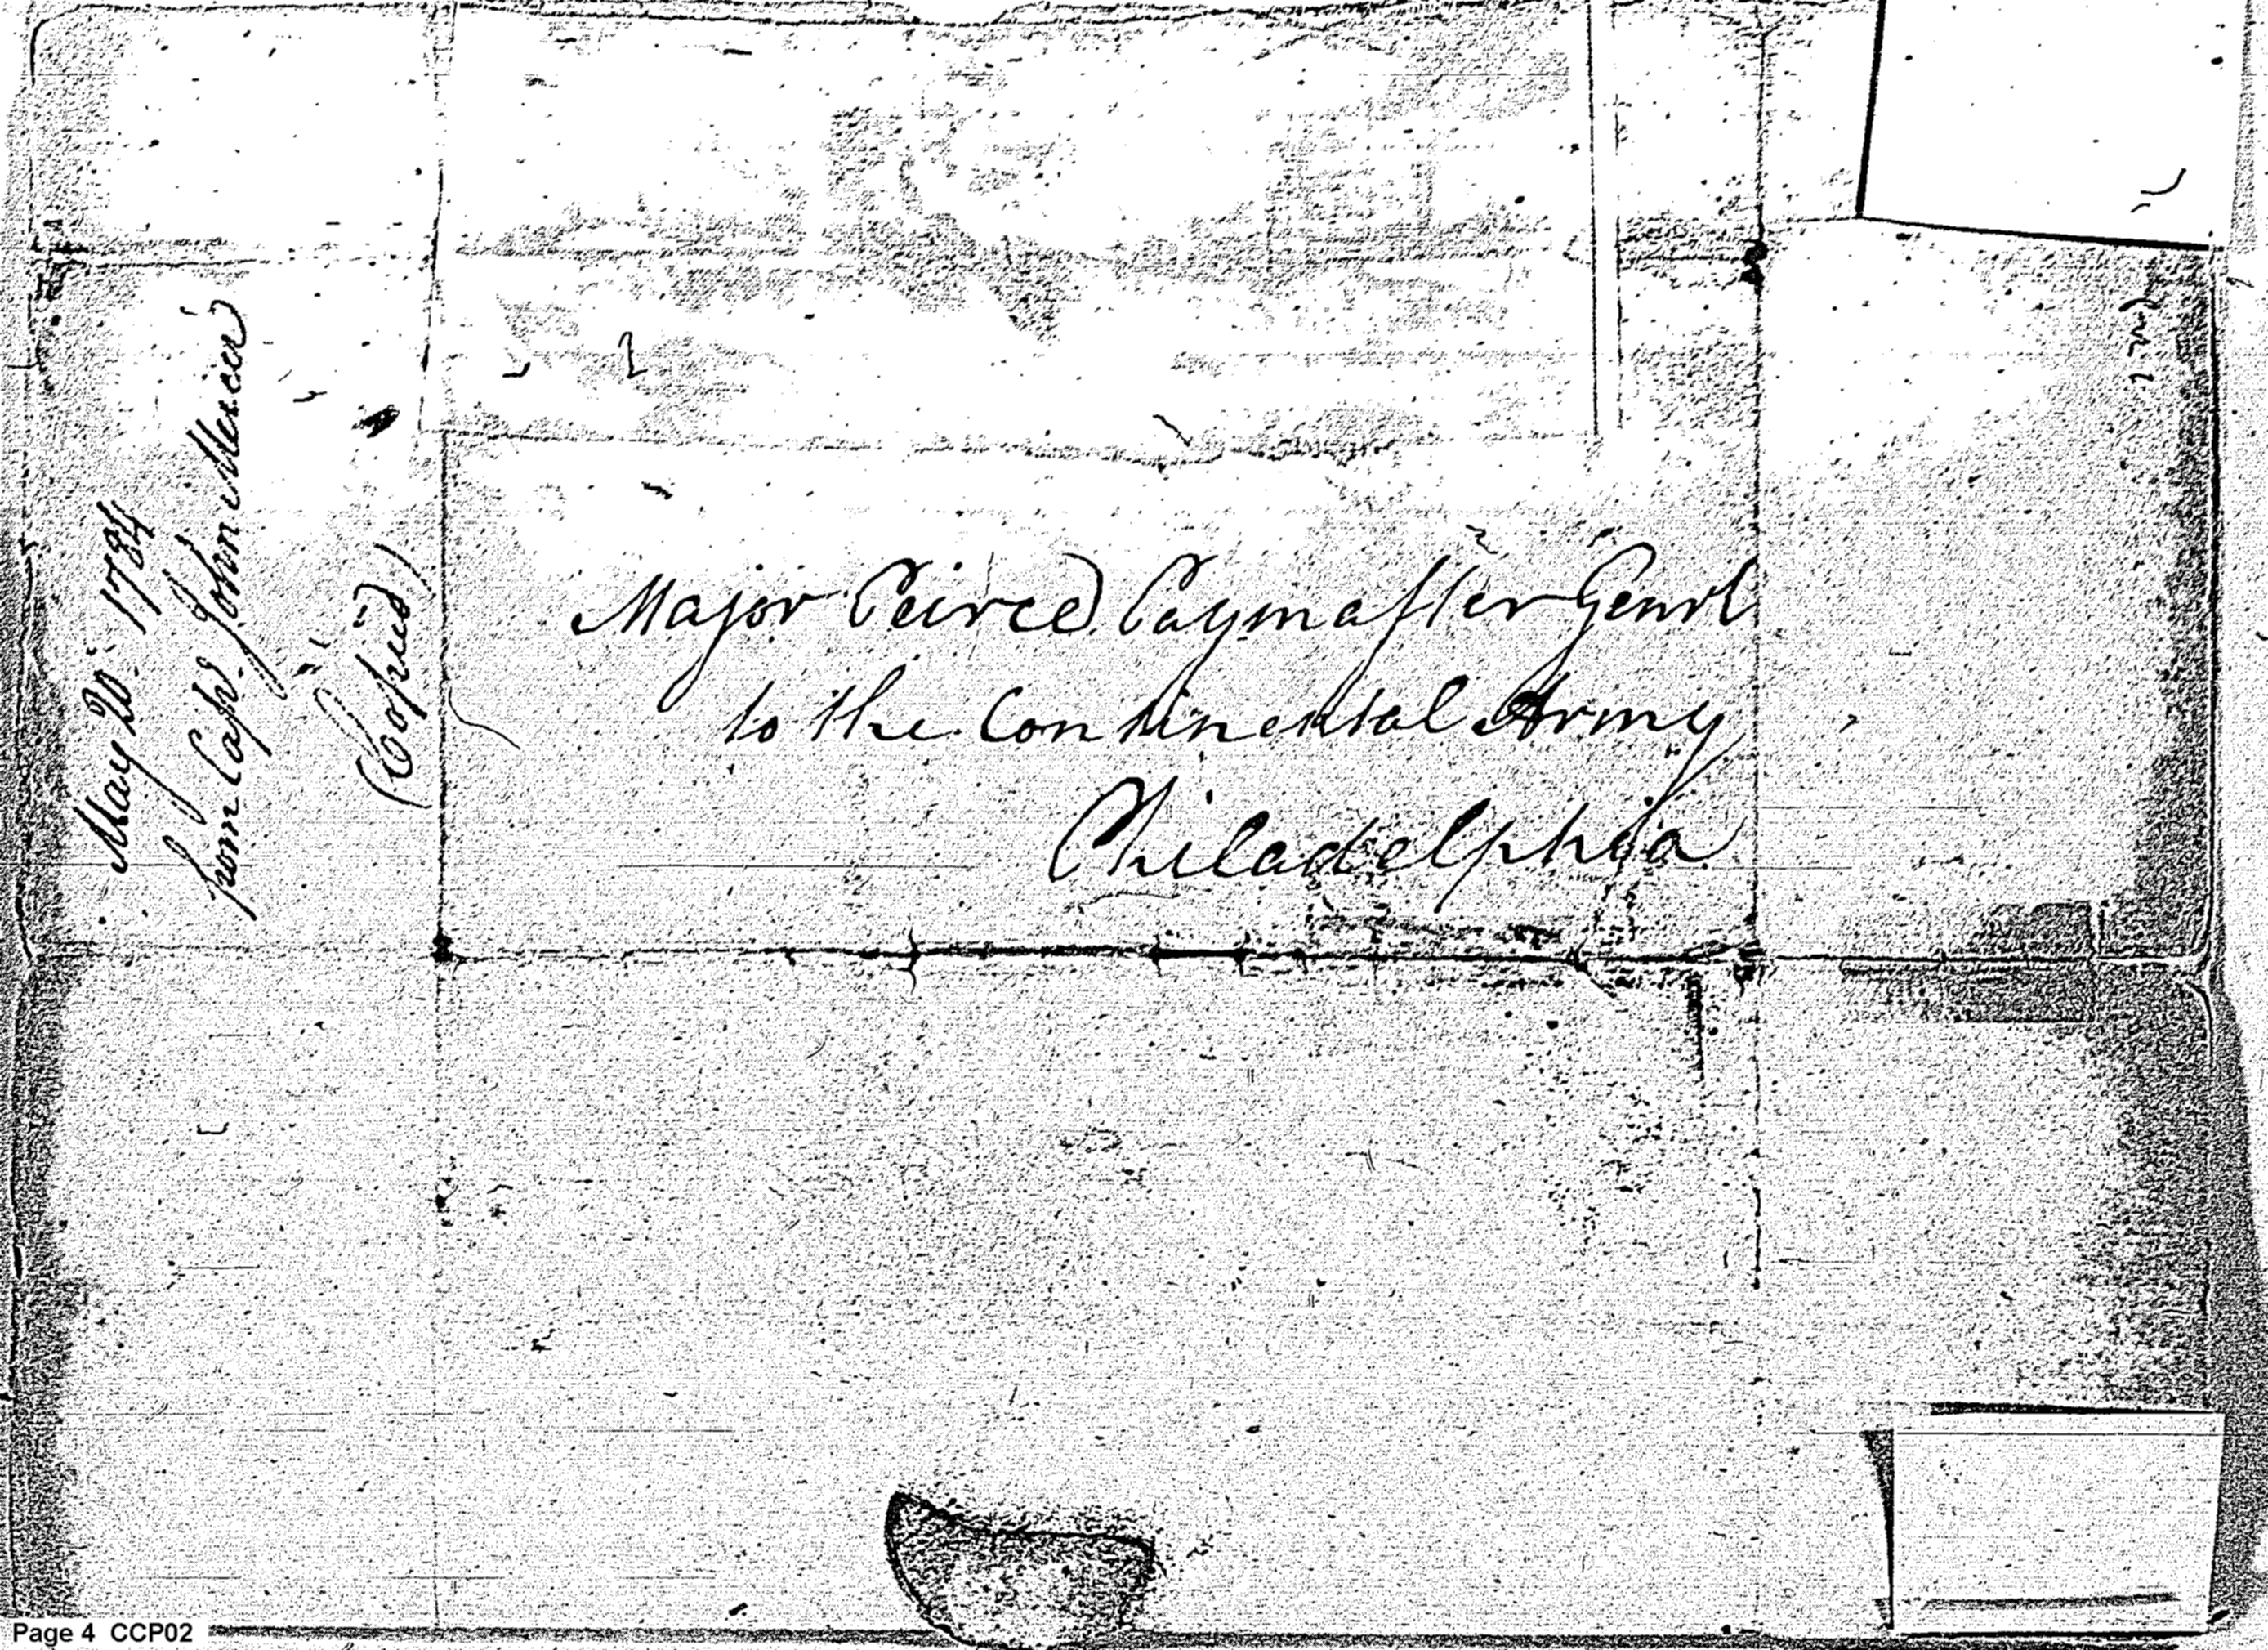 May 20. 1784
from Capt. John Mercer
(Copied)
Major Peirce Paymaster Genrl
to the Continental Army
Philadelphia
Page 4 CCP02